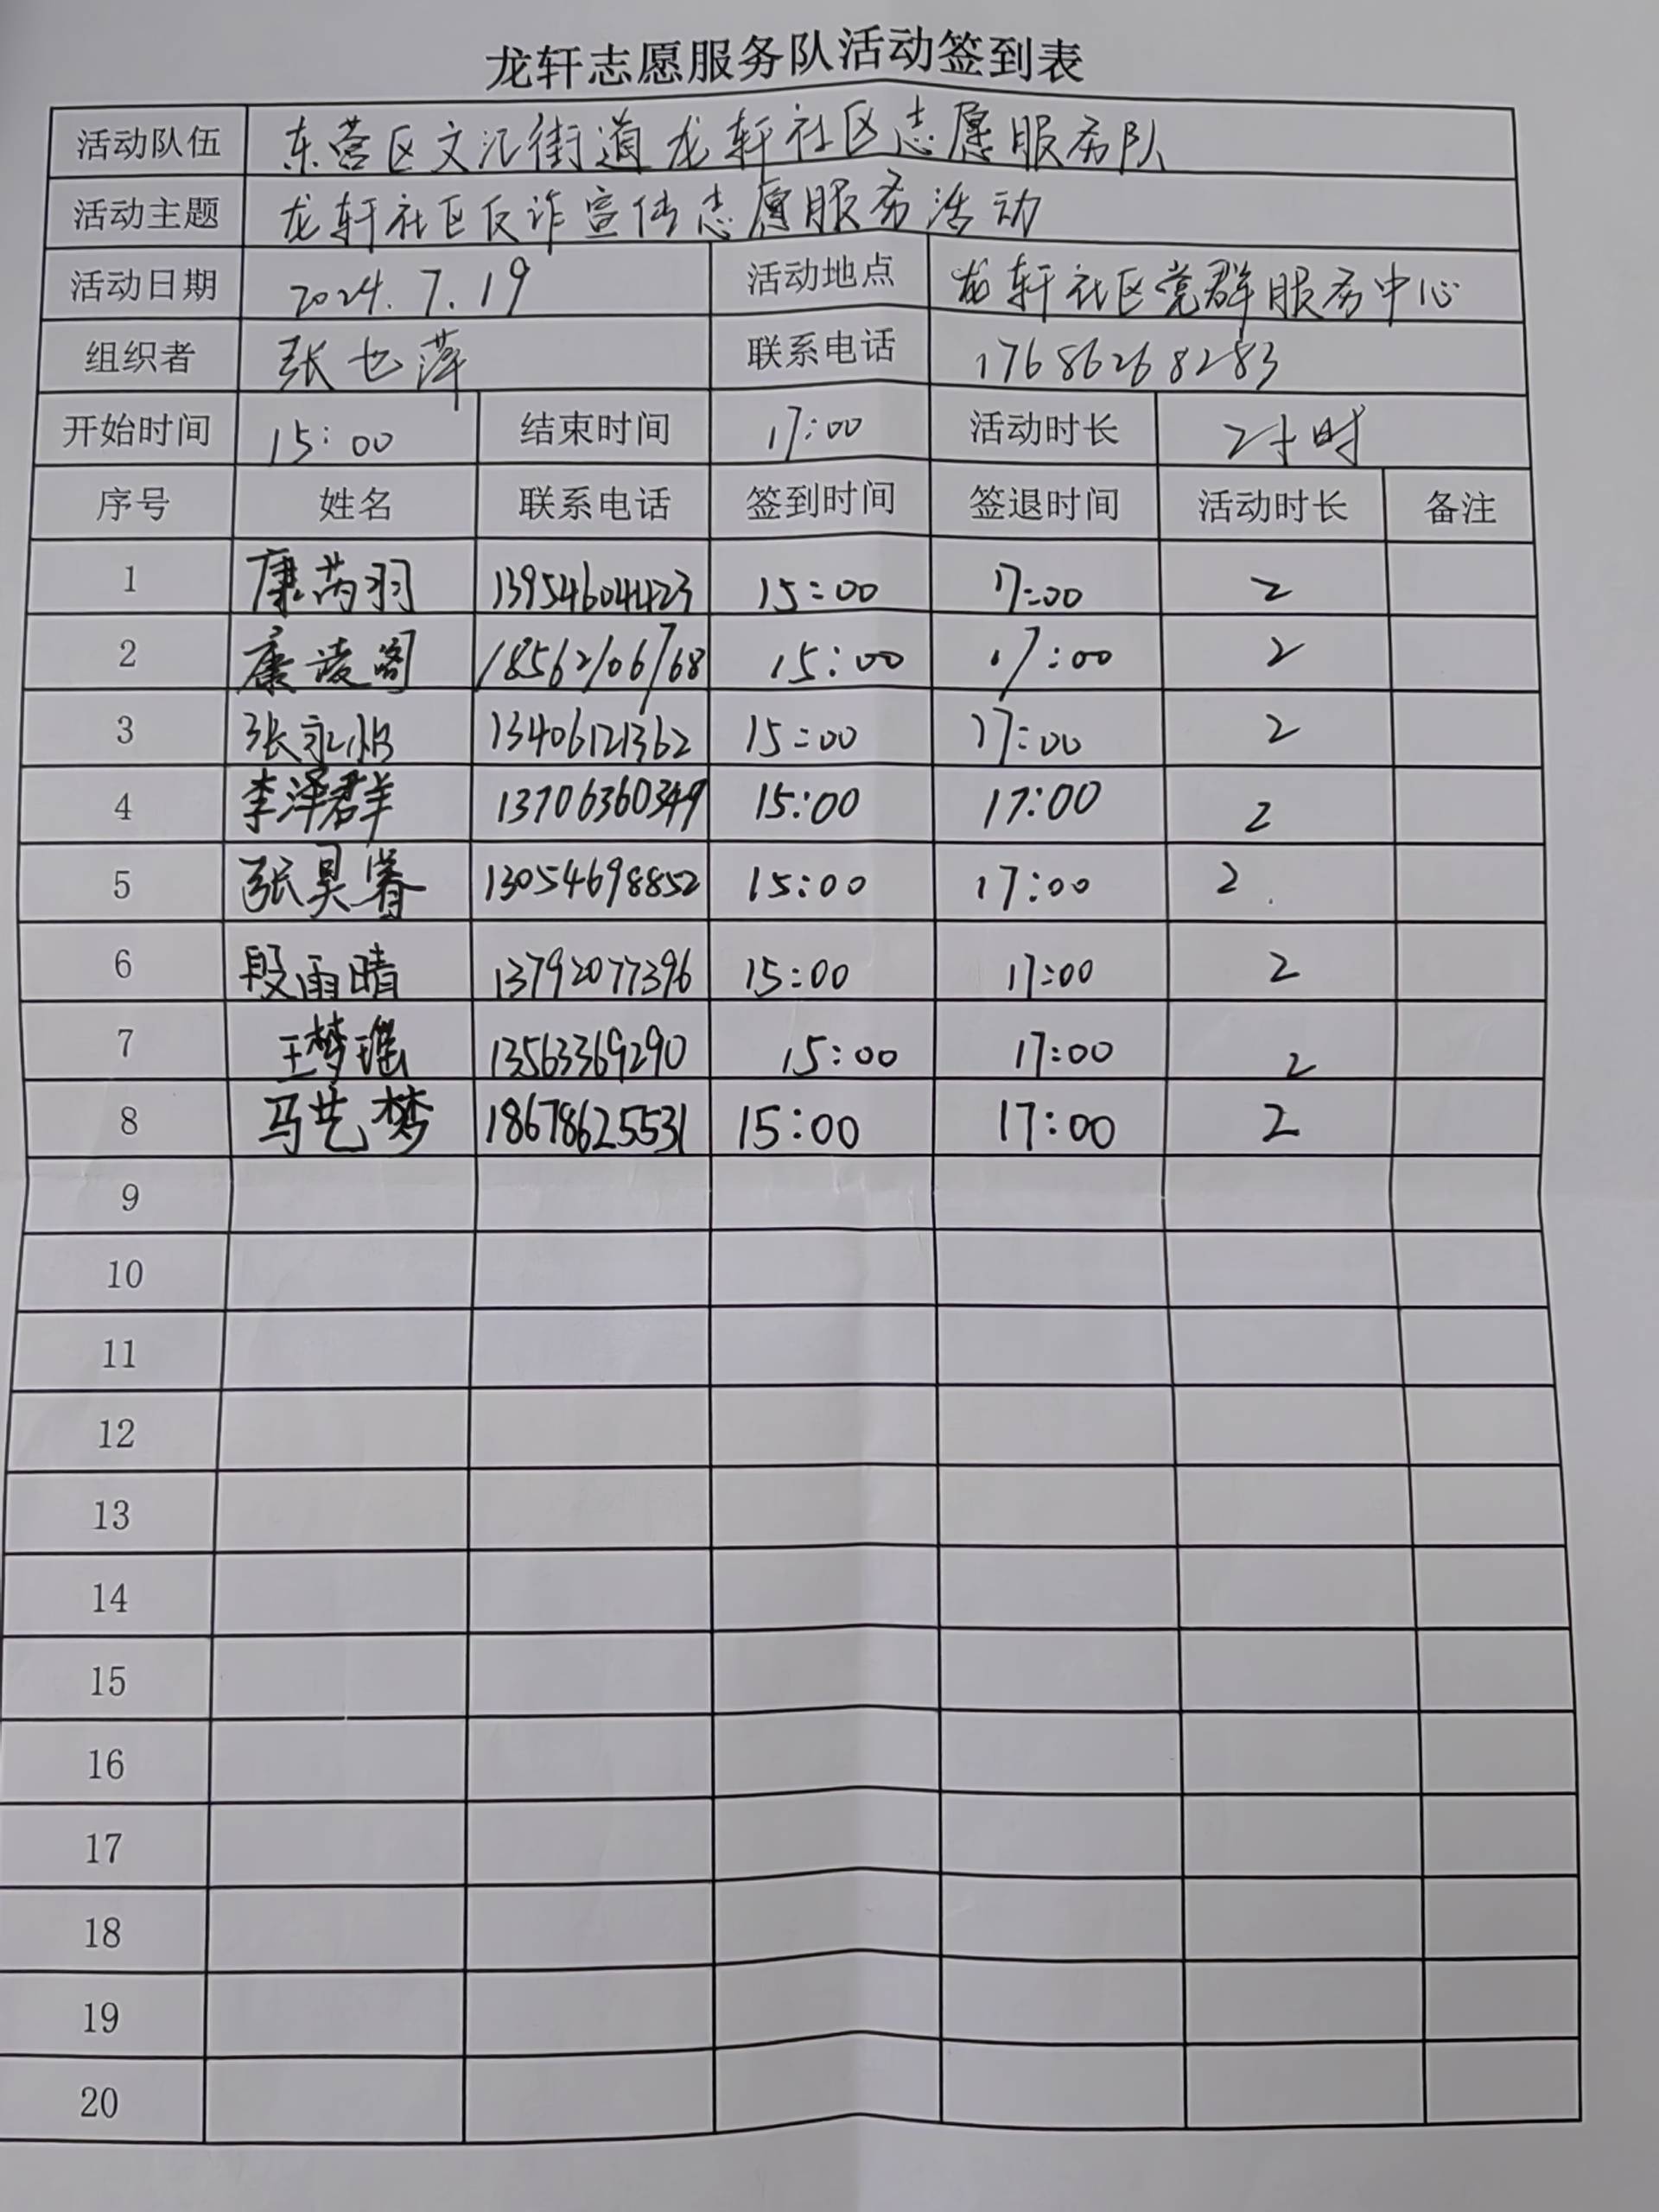 龙轩志愿服务队活动签到表
活动队伍 东营区文汇街道龙轩社区志愿服务队
活动主题 龙轩社区反诈宣传志愿服务活动
活动日期 2024.7.19 活动地点 龙轩社区党群服务中心
组织者 张也萍 联系电话 17686268283
开始时间 15:00 结束时间 17:00 活动时长 2小时
序号 姓名 联系电话 签到时间 签退时间 活动时长 备注
1 康芮羽 13954604423 15:00 17:00 2
2 康凌阁 18562106768 15:00 17:00 2
3 张永怡 13406121362 15:00 17:00 2
4 李泽群 13706360349 15:00 17:00 2
5 张昊 13054698852 15:00 17:00 2
6 段雨晴 13792077396 15:00 17:00 2
7 王梦瑶 13563369290 15:00 17:00 2
8 马艺梦 18678625531 15:00 17:00 2
9
10
11
12
13
14
15
16
17
18
19
20